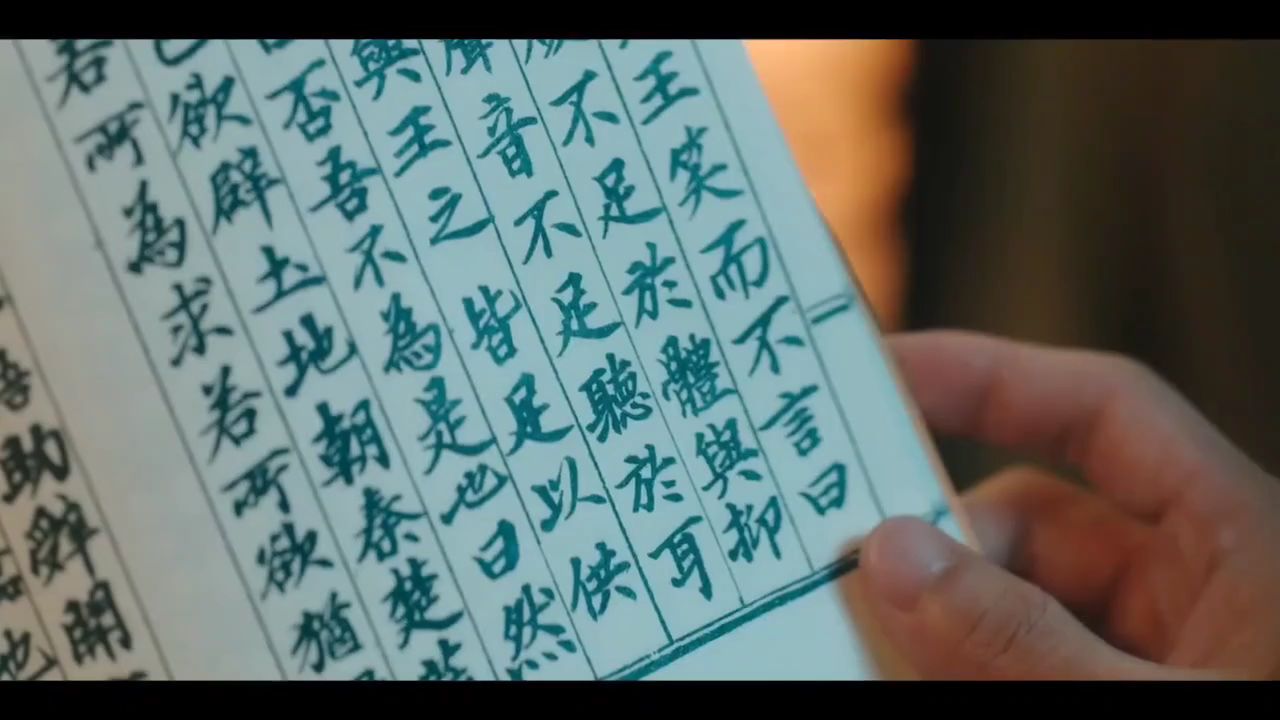 王笑而不言曰
不足於體與抑
聲音不足聽於耳
與王之皆足以供
否吾不為是也曰然
已欲辟土地朝秦楚莅
若所為求若所欲猶
吾助辟開
他